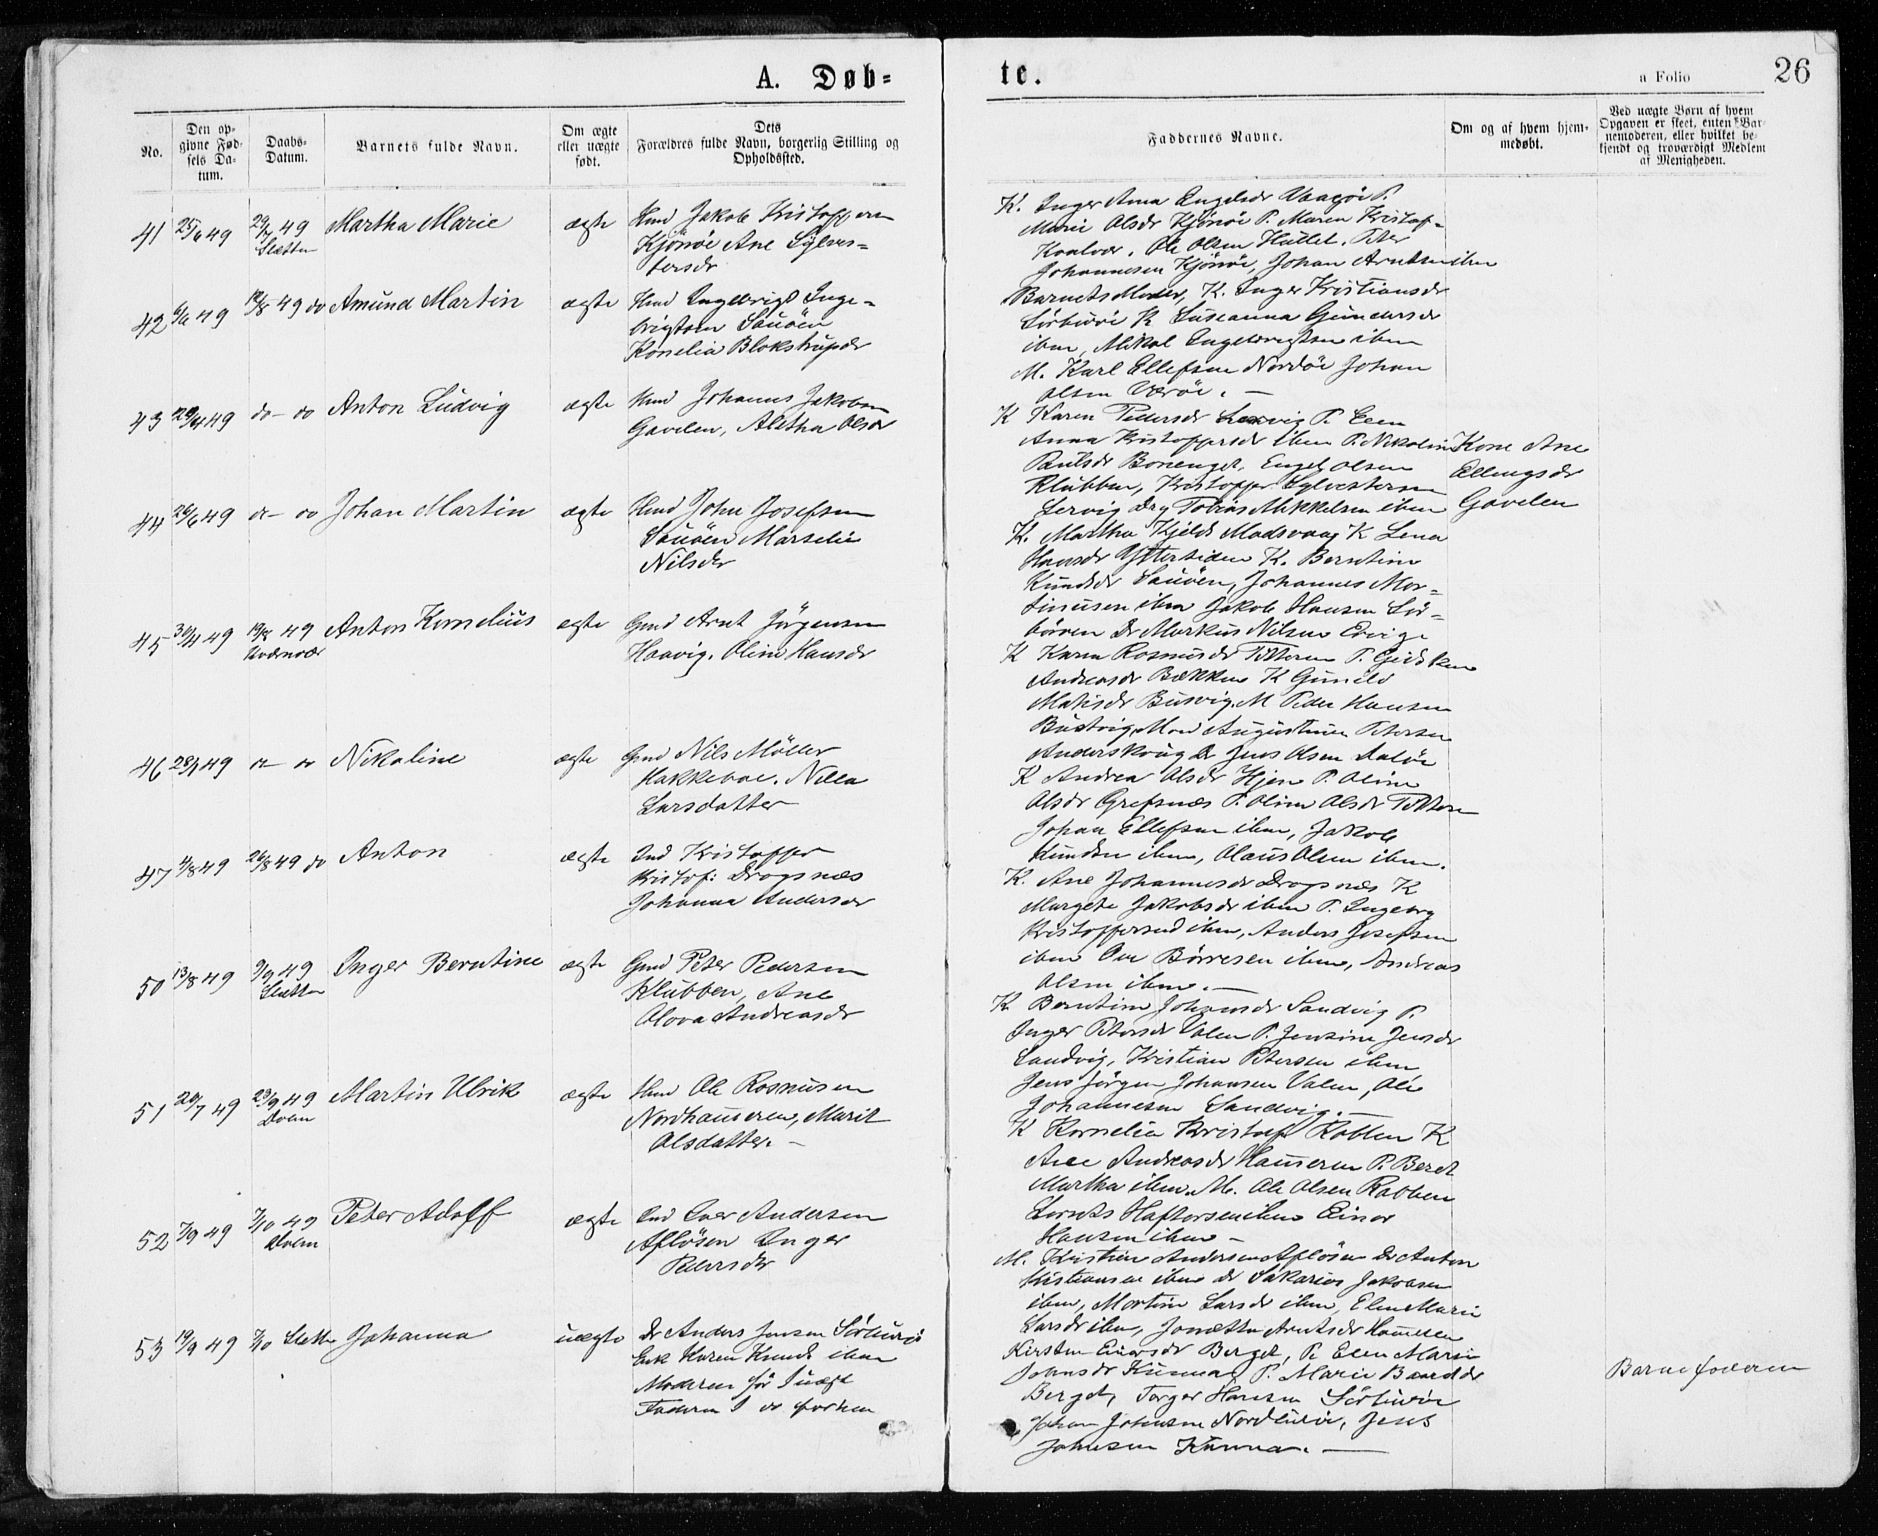 A. Døb=
te.
a Folio
26
No.
Den op=
givne Fød=
sels Da=
tum.
Daabs=
Datum.
Barnets fulde Navn.
Om ægte
eller uægte
født.
Dets
Forældres fulde Navn, borgerlig Stilling og
Opholdssted.
Faddernes Navne.
Om og af hvem hjem=
medøbt.
Ved uægte Børn af hvem
Opgaven er skeet, enten Bar=
nemoderen, eller hvilket be=
kjendt og troværdigt Medlem
af Menigheden.
41 25/6 49 29/7 49
Sletten
Martha Marie
ægte
Hmd Jakob Kristoffersen
Kjönöe Ane Sylves=
tersdr
K. Inger Anna Engelsdr Vaagöe P.
Marie Olsdr Kjönöe P. Maren Kristof=
Kvalvær. Ole Olsen Hallet. Peter
Johannesen Kjönöe, Johan Arntsen ibm
42 6/6 49 12/8 49 do Amund Martin
ægte
Hmd Ingebrigt Inge=
brigtsen Sauöen
Kornelia Blokstrupdr
Barnets Moder, K. Inger Kristiansdr
Sörburöe K Suseanna Gundersdr
ibm, Mikal Engebrigtsen ibm
M. Karl Ellefsen Nordöe Johan
Olsen Væröe. —
43 29/4 49 do do Anton Ludvig
ægte
Hmd Johannes Jakobsen
Gavelen, Aletha Olsdr
K Karen Pedersdr Lervig P. Elen
Anna Kristoffersdr ibm P. Nikoline
Paulsdr Bonenget, Engel Olsen
Klubben, Kristoffer Sylvestersen
Lervig Drg Tobias Mikkelsen ibm
Kone Ane
Ellingsdr
Gavelen
44 26/6 49 do do Johan Martin
ægte
Hmd John Josefsen
Sauöen Marselie
Nilsdr
K. Martha Kjelds Madsvaag K Lena
Hansdr Yttersiden K. Berntine
Knudsdr Sauöen, Johannes Mor=
tinusen ibm Jakob Hansen Sör=
böröen Dr Markus Nilsen
45 30/4 49 19/8 49
Kværnvær
Anton Kornelius
ægte
Gmd Arnt Jörgensen
Haavig. Oline Hansdr
K Karen Rasmusdr Titteren P. Gidsken
Andreasdr Bækken K Gunild
Matisdr Busvig M Peder Hansen
Bustvig, M Augustinus Petersen
Anderskoug Dr Jens Olsen Daløe
46 28/1 49 do do Nikoline
ægte
Gmd Nils Möller
Hakkeboe. Nilla
Larsdatter
K Andrea Olsdr Hjem P. Oline
Olsdr Græfsnæs P. Oline Olsdr Titteren
Johan Ellefsen ibm, Jakob
Knudsen ibm, Olaus Olsen ibm.
47 4/8 49 26/8 49 do Anton
ægte
Ind Kristoffer
Kristof: Dragsnæs
Johanna Andersdr
K. Ane Johannesdr Dragsnæs K
Margete Jakobsdr ibm P. Ingeborg
Kristoffersend ibm, Anders Josefsen
ibm Ove Börresen ibm, Andreas
Olsen ibm. —
50 13/8 49 9/9 49
Sletten
Inger Berntine
ægte
Gmd Peter Pedersen
Klubben, Ane
Olova Andreasdr
K Berntine Johansdr Sandvig P.
Inger Petersdr Valen P. Jensine Jensdr
Sandvig, Kristian Petersen ibm
Jens Jörgen Johansen Valen, Ole
Johannesen Sandvig. —
51 20/7 49 23/9 49
Dolm
Martin Ulrik
ægte
Hmd Ole Rasmusen
Nordhammeren, Marit
Olsdatter. —
K Kornelia Kristofs Rabben K
Ane Andreasdr Hammeren P. Beret
Martha ibm. M. Ole Olsen Rabben
Lornts Haftorsen ibm Einar
Hansen ibm —
52 7/9 49 7/10 49
Dolm
Peter Adolf
ægte
Ind Iver Andersen
Aflösen Inger
Pedersdr
M. Kristian Andersen Aflösen Dr Anton
Kristiansen ibm dr Sakarias Jakobsen
ibm, Martine Larsdr ibm, Elen Marie
Larsdr ibm, Jonetta Arntsdr Hammeren
53 19/9 49 7/10 Slett Johanna
uægte
Dr Anders Jensen Sörburöe
Enk Karen Knuds ibm
Moderen för 1 uægt
Faderen 1 do forhen
Kirsten Einarsdr Berget, P. Elen Marie
Johnsdr Kunna P. Marie Baarddr
Berget, Torger Hansen Sörburöe
Johan Johnsen Nordburöe, Jens
Johnsen Kunna. —
Barnefaderen